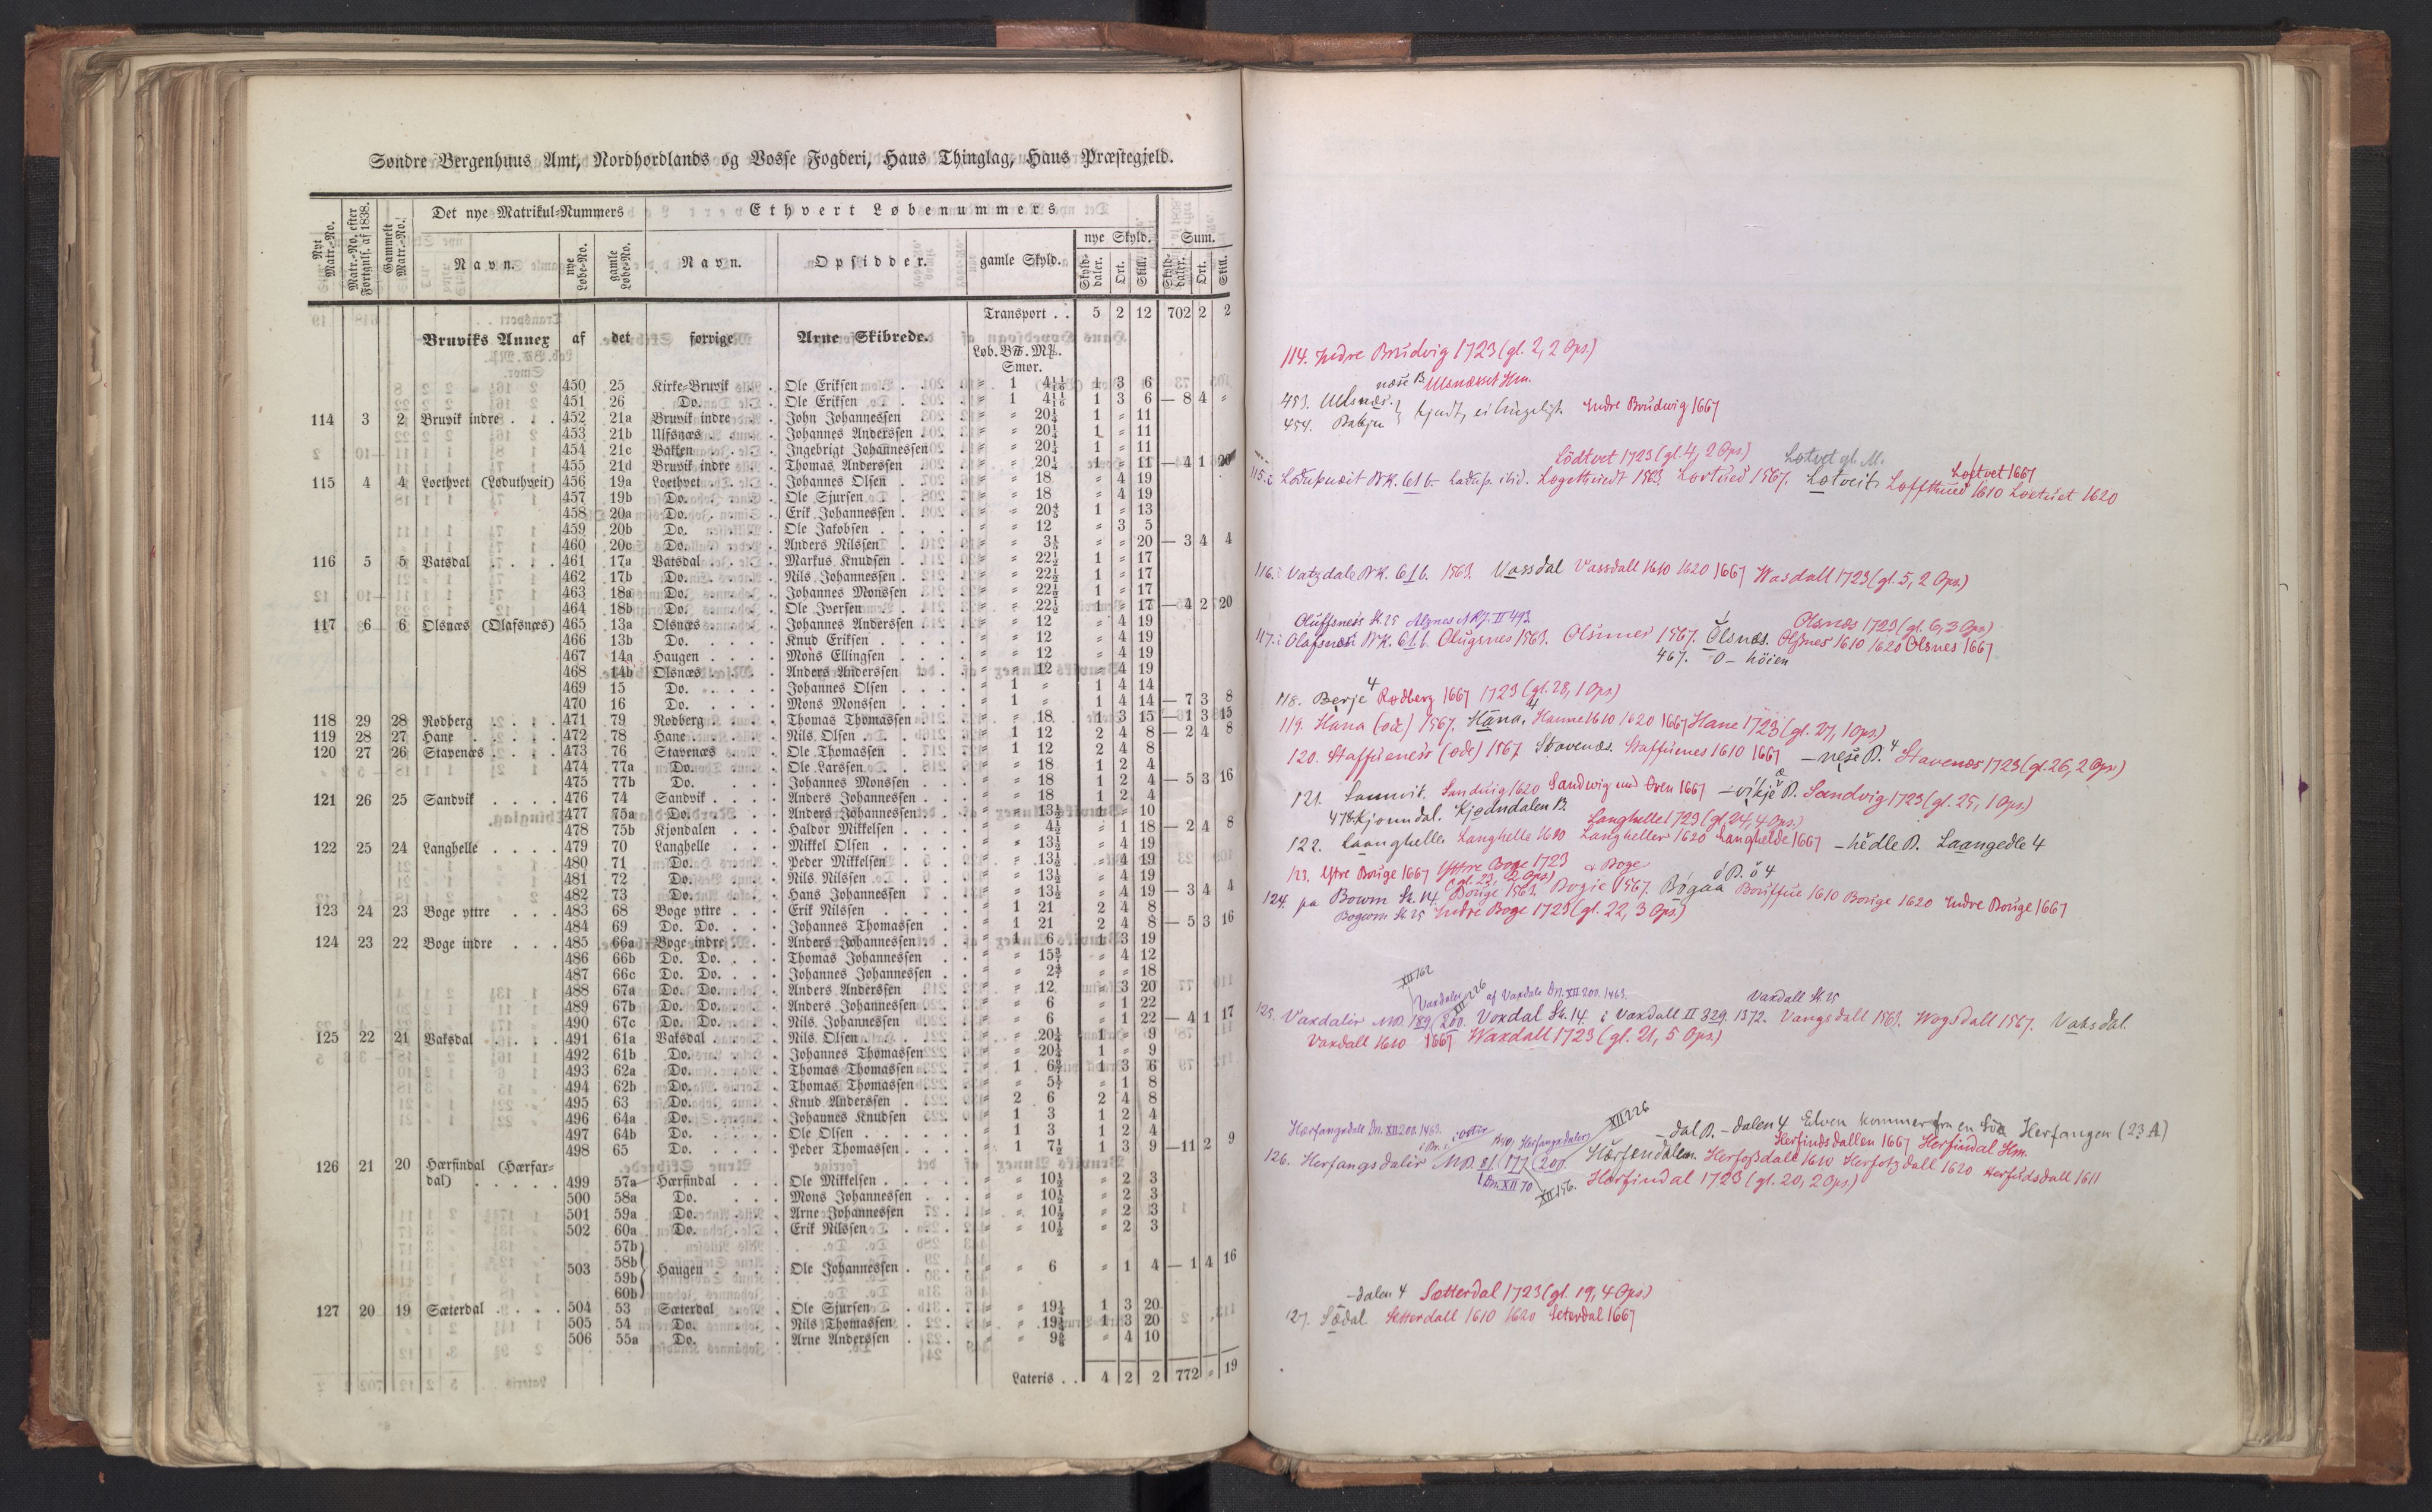 Søndre Bergenhuus Amt, Nordhordlands og Vosse Fogderi, Haus Thinglag, Haus Præstegjeld.
Nyt Matr.-No. Matr.-No. efter Fortgnls. af 1838. Gammelt Matr.-No. Det nye Matrikul-Nummers Ethvert Løbenummers
Navn. nye Løbe-No. gamle Løbe-No. Navn. Opsidder. gamle Skyld. nye Skyld. Sum.
Skyld-daler. Ort. Skill. Skyld-daler. Ort. Skill.
Transport . . 5 2 12 702 2 2
Bruviks Annex af det forrige Arne Skibrede.
Løb. B℔. M℔.
Smør.
450 25 Kirke-Bruvik . . Ole Eriksen . . . . „ 1 4 1/16 1 3 6
451 26 Do. . . Ole Eriksen . . . . „ 1 4 1/16 1 3 6 — 8 4 „
114 3 2 Bruvik indre . . . 452 21a Bruvik indre . . John Johannessen . „ „ 20¼ 1 „ 11
453 21b Ulfsnæs . . . . Johannes Anderssen . „ „ 20¼ 1 „ 11
454 21c Bakken . . . . Ingebrigt Johannessen „ „ 20¼ 1 „ 11
455 21d Bruvik indre . . Thomas Anderssen . „ „ 20¼ 1 „ 11 — 4 1 20
115 4 4 Loethvet (Loduthveit) 456 19a Loethvet . . . . Johannes Olsen . . „ „ 18 „ 4 19
457 19b Do. . . . Ole Sjursen . . . „ „ 18 „ 4 19
458 20a Do. . . . Erik Johannessen . . „ „ 20⅘ 1 „ 13
459 20b Do. . . . Ole Jakobsen . . . „ „ 12 „ 3 5
460 20c Do. . . . Anders Nilssen . . „ „ 3⅕ „ „ 20 — 3 4 4
116 5 5 Vatsdal . . . . 461 17a Vatsdal . . . . Markus Knudsen . . „ „ 22½ 1 „ 17
462 17b Do. . . . Nils Johannessen . . „ „ 22½ 1 „ 17
463 18a Do. . . . Johannes Monssen . . „ „ 22½ 1 „ 17
464 18b Do. . . . Ole Iversen . . . „ „ 22½ 1 „ 17 — 4 2 20
117 6 6 Olsnæs (Olafsnæs) 465 13a Olsnæs . . . . Johannes Anderssen . „ „ 12 „ 4 19
466 13b Do. . . . Knud Eriksen . . . „ „ 12 „ 4 19
467 14a Haugen . . . . Mons Ellingsen . . „ „ 12 „ 4 19
468 14b Olsnæs . . . . Anders Anderssen . . „ „ 12 „ 4 19
469 15 Do. . . . Johannes Olsen . . „ 1 „ 1 4 14
470 16 Do. . . . Mons Monssen . . . „ 1 „ 1 4 14 — 7 3 8
118 29 28 Rodberg . . . . 471 79 Rodberg . . . . Thomas Thomassen . „ „ 18 1 3 15 — 1 3 15
119 28 27 Hane . . . . . 472 78 Hane . . . . . Nils Olsen . . . . „ 1 12 2 4 8 — 2 4 8
120 27 26 Stavenæs . . . . 473 76 Stavenæs . . . Ole Thomassen . . . „ 1 12 2 4 8
474 77a Do. . . . Ole Larssen . . . „ „ 18 1 2 4
475 77b Do. . . . Johannes Monssen . . „ „ 18 1 2 4 — 5 3 16
121 26 25 Sandvik . . . . 476 74 Sandvik . . . . Anders Johannessen . . „ „ 18 1 2 4
477 75a Do. . . . Anders Johannessen . . „ „ 13½ 1 „ 10
478 75b Kjøndalen . . . Haldor Mikkelsen . . „ „ 4½ „ 1 18 — 2 4 8
122 25 24 Langhelle . . . . 479 70 Langhelle . . . Mikkel Olsen . . . „ „ 13½ „ 4 19
480 71 Do. . . . Peder Mikkelsen . . „ „ 13½ „ 4 19
481 72 Do. . . . Nils Nilssen . . . „ „ 13½ „ 4 19
482 73 Do. . . . Hans Johannessen . . „ „ 13½ „ 4 19 — 3 4 4
123 24 23 Boge yttre . . . 483 68 Boge yttre . . . Erik Nilssen . . . „ 1 21 2 4 8
484 69 Do. Do. . . . Johannes Thomassen . „ 1 21 2 4 8 — 5 3 16
124 23 22 Boge indre . . . 485 66a Boge indre . . . Anders Johannessen . . „ 1 6 1 3 19
486 66b Do. Do. . . . Thomas Johannessen . . „ „ 15 3/7 „ 4 12
487 66c Do. Do. . . . Johannes Johannessen . . „ „ 2 4/7 „ „ 18
488 67a Do. Do. . . . Anders Anderssen . . „ „ 12 „ 3 20
489 67b Do. Do. . . . Anders Johannessen . . „ „ 6 „ 1 22
490 67c Do. Do. . . . Nils Johannessen . . „ „ 6 „ 1 22 — 4 1 17
125 22 21 Vaksdal . . . . 491 61a Vaksdal . . . . Nils Olsen . . . . „ „ 20¼ 1 „ 9
492 61b Do. . . . Johannes Thomassen . . „ „ 20¼ 1 „ 9
493 62a Do. . . . Thomas Thomassen . . „ 1 6 6/7 1 3 6
494 62b Do. . . . Thomas Thomassen . . „ „ 5 1/7 „ 1 8
495 63 Do. . . . Knud Anderssen . . „ 2 6 2 4 8
496 64a Do. . . . Johannes Knudsen . . „ 1 3 1 2 4
497 64b Do. . . . Ole Olsen . . . . „ 1 3 1 2 4
498 65 Do. . . . Peder Thomassen . . „ 1 7½ 1 3 9 —11 2 9
126 21 20 Hærfindal (Hærfar-
dal) . . . . . 499 57a Hærfindal . . . Ole Mikkelsen . . . „ „ 10½ „ 2 3
500 58a Do. . . . Mons Johannessen . . „ „ 10½ „ 2 3
501 59a Do. . . . Arne Johannessen . . „ „ 10½ „ 2 3
502 60a Do. . . . Erik Nilssen . . . „ „ 10½ „ 2 3
57b
58b
503 Haugen . . . . Ole Johannessen . . . „ „ 6 „ 1 4 — 1 4 16
59b
60b
127 20 19 Sæterdal . . . . 504 53 Sæterdal . . . Ole Sjursen . . . „ „ 19¼ 1 3 20
505 54 Do. . . . Nils Thomassen . . „ „ 19¼ 1 3 20
506 55a Do. . . . Arne Anderssen . . „ „ 9⅝ „ 4 10
Lateris . . 4 2 2 772 „ 19
114. Indre Brudvig 1723 (gl. 2, 2 Ops.)
næse B. Ulsnæset Hm.
453. Ulsnæs.
454. Bakju } kjendt, ei brugeligt. Indre Brudwig 1667
Lödtvet 1723 (gl. 4, 2 Ops) Lotvet gl. M. Loftvet 1667
115. i Lodupueit BK. 61 b. Ladup. ibid. Logethuedt 1563. Lortued 1567. Lotveit. Loffthued 1610 Löetuet 1620
116. i Vatzdale BK. 61 b. 1563. Vassdal Vassdall 1610 1620 1667 Wasdall 1723 (gl. 5, 2 Ops)
Oluffsness St. 25 Alznes NRJ. II 493
Olsnæs 1723 (gl. 6, 3 Ops)
117. i Olafsnesi BK. 61 b. Olugsnes 1563. Olsnnes 1567. Olsnæs. Olsnes 1610 1620 Olsnes 1667
467. O- höien
118. Berje 4 Rodberg 1667 1723 (gl. 28, 1 Ops)
119. Hana (øde) 1567. Hana. 4 Hanne 1610 1620 1667 Hane 1723 (gl. 27, 1 Ops)
120. Staffueness (øde) 1567 Stavenæs. Staffuenes 1610 1667 - nese P. 4 Stavenæs 1723 (gl. 26, 2 Ops)
121. Sannvik. Sandvig 1620 Sandwig med Even 1667 - vikje P. Sandvig 1723 (gl. 25, 1 Ops)
478. Kjonndal. Kjødndalen B.
Langhelle 1723 (gl. 24, 4 Ops.)
122. Laanghelle. Langhelle 1610 Langheller 1620 Langhelde 1667 - hedle P. Laangedle 4
123. Ytre Bouge 1667 Yttre Boge 1723 (gl. 23, 2 Ops) & Boge ó P. ò 4
124. pa Bowm St. 14. Bouge 1563. Bogie 1567. Bogaa Bouffue 1610 Bouge 1620 Indre Bouge 1667
Bogwm St. 25 Indre Boge 1723 (gl. 22, 3 Ops)
XII 162
Vaxdaler XII 226 af Vaxdale Dn. XII 200. 1463. Vaxdall St. 25
125. Vaxdalir MB. 189. 200. Voxdal St. 14. i Vaxdall II 329 1372. Vangsdall 1563. Wogsdall 1567. Vaksdal.
Vaxdall 1610 1667 Waxdall 1723 (gl. 21, 5 Ops)
XII 226
- dal P. - dalen 4 Elven kommer fra en Sø Herfangen (23 A)
Hærfangsdale Dn. XII 200. 1463. Herfangsdaler Herfindsdallen 1667 Herfindal Hm.
126. Herfangsdalir MB. 81. 177. 200. Hærfendalen. Herfossdall 1610 Herfotzdall 1620 Herfudsdall 1611
Dn. XII 70 XII 156. Hærfindal 1723 (gl. 20, 2 Ops)
- dalen 4 Sætterdal 1723 (gl. 19, 4 Ops)
127. Sædal Setterdall 1610 1620 Seterdal 1667